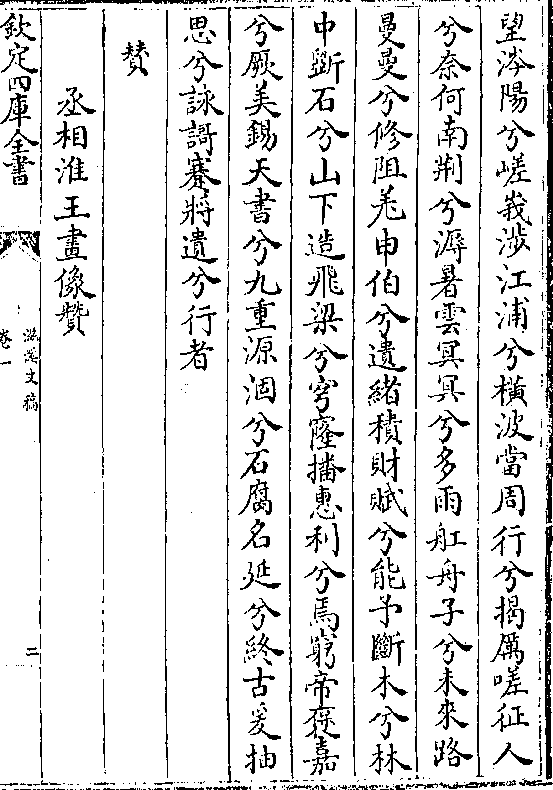 望涔陽兮嵯峩涉江浦兮橫波當周行兮揭厲嗟征人
兮奈何南荆兮溽暑雲冥冥兮多雨舡舟子兮未來路
曼曼兮修阻羌申伯兮遺緒積財賦兮能予斷木兮林
中斲石兮山下造飛梁兮穹窿播惠利兮焉窮帝褒嘉
兮厥美錫天書兮九重源涸兮石腐名延兮終古爰抽
思兮詠謌搴將遺兮行者
贊
丞相淮王畫像贊
欽定四庫全書
滋溪文稿
卷一
二